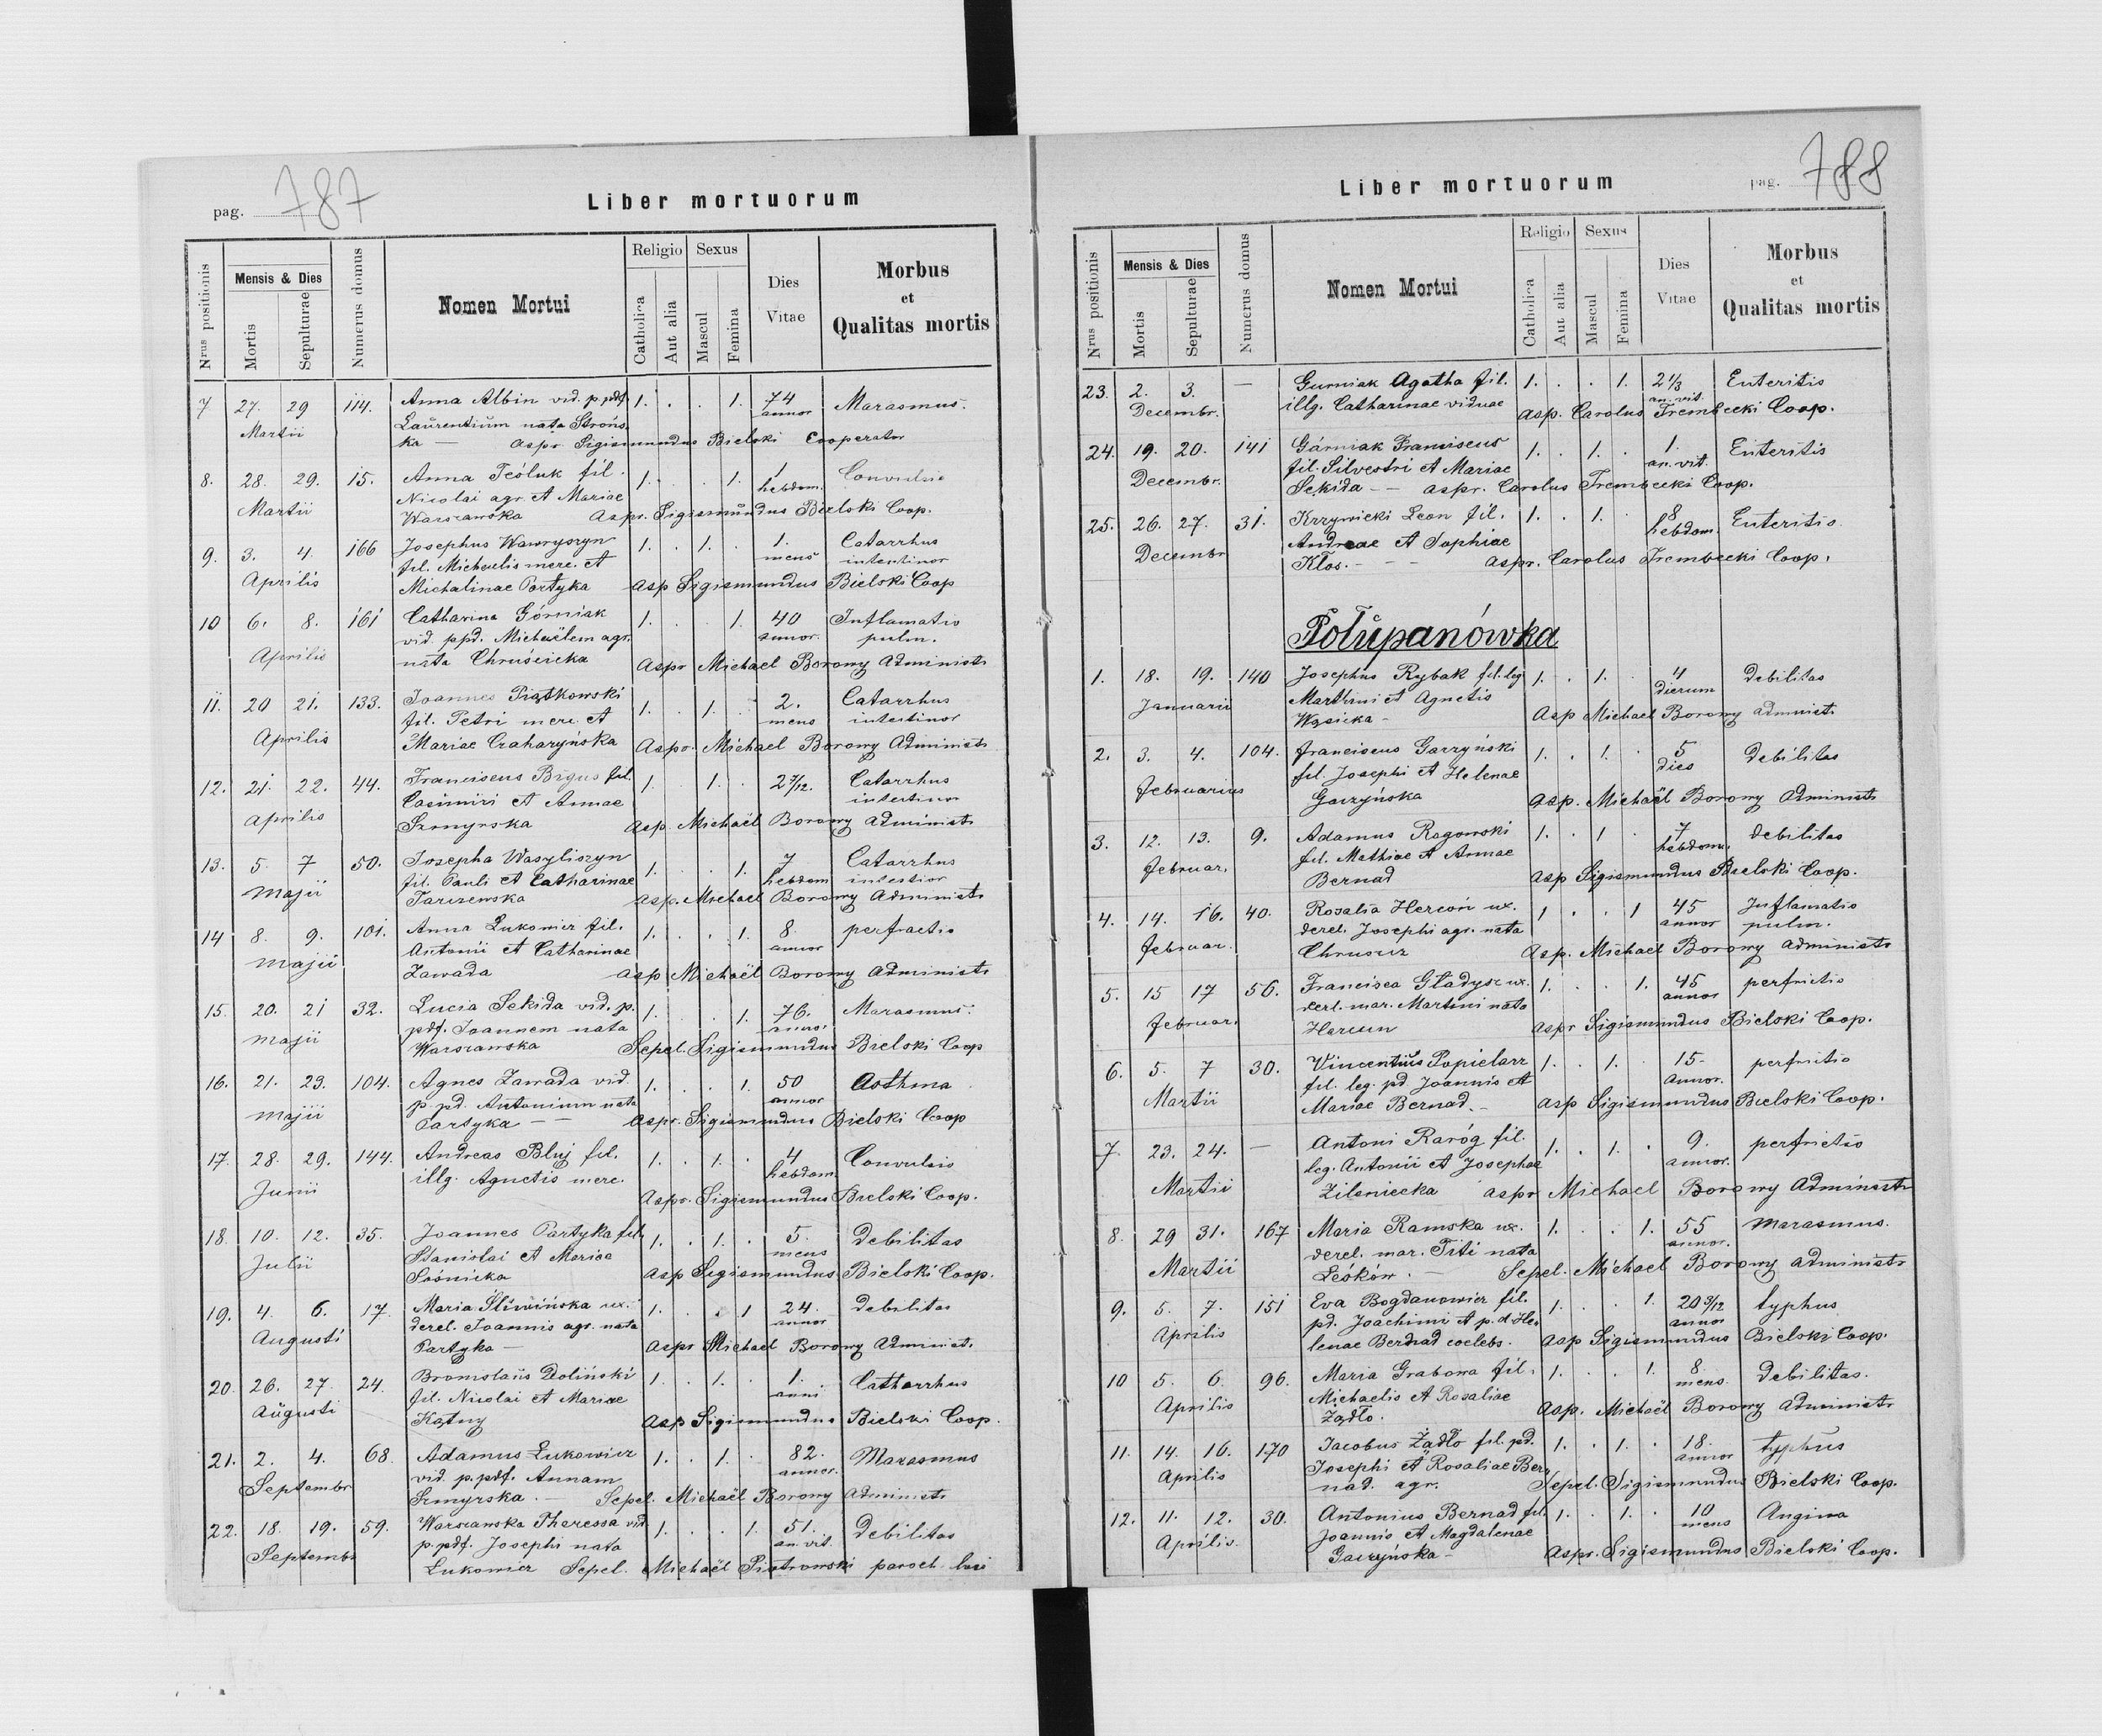 pag. 787
Liber mortuorum
Nrus positionis
Mensis & Dies
Mortis
Sepulturae
Numerus domus
Nomen Mortui
Religio
Catholica
Aut alia
Sexus
Mascul
Femina
Dies Vitae
Morbus et Qualitas mortis
7 27. 29 114. Anna Albin vid. p. pdf 1. . . 1. 74 Marasmus.
Martii Laurentium nata Strońs annor
ka — aspr. Sigismundus Bielski Cooperator
8. 28. 29. 15. Anna Teóluk fil. 1. . . 1. 1 Convulsio
Martii Nicolai agr. et Mariae hebdom.
Warszawska Aspr. Sigismundus Bielski Coop.
9. 3. 4. 166 Josephus Wawryszyn 1. . 1. . 1. Catarrhus
Aprilis fil. Michaelis merc. et mens intestinor
Michalinae Partyka Asp Sigismundus Bielski Coop
10 6. 8. 161 Catharina Górniak 1. . . 1. 40 Inflamatio
Aprilis vid. ppd. Michaëlem agr. annor. pulm.
nata Chruścicka Aspr Michael Borowy Administr
11. 20 21. 133. Joannes Piątkowski 1. . 1. . 2. Catarrhus
Aprilis fil. Petri merc. et mens intestinor
Mariae Craharyńska Aspr. Michael Borowy Administr
12. 21. 22. 44. Franciscus Bigus fil. 1. 1. . 2 7/12. Catarrhus
Aprilis Casimiri et Annae intestinor
Szmyrska Asp. Michaël Borowy Administr
13. 5. 7 50. Josepha Wasyliszyn 1. . . 1. 7 Catarrhus
Majii fil. Pauli et Catharinae hebdom intestior
Tarczewska Asp. Michael Borowy Administr
14 8. 9. 101. Anna Lukowicz fil. 1. . . 1. 8. perfrictio
Majii Antonii et Catharinae annor
Zawada asp Michaël Borowy Administr
15. 20. 21 32. Lucia Sekida vid. p. 1. . . 1. 76. Marasmus.
Majii pdf. Joannem nata annor
Warszawska Sepel. Sigismundus Bielski Coop
16. 21. 23. 104. Agnes Zawada vid. 1. . . 1. 50 Asthma
Majii p. pd. Antonium nata annor
Partyka — — aspr. Sigismundus Bielski Coop
17. 28. 29. 144. Andreas Bluj fil. 1. . 1. . 4 Convulsio
Junii illg. Agnetis merc. hebdom
Aspr. Sigismundus Bielski Coop.
18. 10. 12. 35. Joannes Partyka fil. 1. . 1. . 5. Debilitas
Julii Stanislai et Mariae mens
Sośnicka asp Sigismundus Bielski Coop.
19. 4. 6. 17. Maria Śliwińska ux. 1. . . 1 24. Debilitas
Augusti derel. Joannis agr. nata annor
Partyka — Aspr Michael Borowy Administ.
20. 26. 27. 24. Bronislaüs Doliński 1. . 1. . 1. Catharrhus
Augusti fil. Nicolai et Mariae anni
Kątny asp Sigismundus Bielski Coop.
21. 2. 4. 68 Adamus Łukowicz 1. . 1. . 82. Marasmus
Septembr vid. p. pdf. Annam annor.
Szmyrska. — Sepel. Michaël Borowy Administr
22. 18. 19. 59. Warszawska Theressa vid 1. . . 1. 51. Debilitas
Septembr p. pdf. Josephi nata an. vit.
Lukowicz Sepel. Michaël Piotrowski paroch. loci
Liber mortuorum
pag. 788
Nrus positionis
Mensis & Dies
Mortis
Sepulturae
Numerus domus
Nomen Mortui
Religio
Catholica
Aut alia
Sexus
Mascul
Femina
Dies Vitae
Morbus et Qualitas mortis
23. 2. 3. — Gurniak Agatha fil. 1. . . 1. 2 1/3 Enteritis
Decembr. illg. Catharinae viduae an. vit.
Asp. Carolus Trembecki Coop.
24. 19. 20. 141 Górniak Franciscus 1. . 1. . 1. Enteritis
Decembr. fil. Silvestri et Mariae an. vit.
Sekida — — aspr. Carolus Trembecki Coop.
25. 26. 27. 31. Krzywicki Leon fil. 1. . 1. . 8 Enteritis
Decembr Andreae et Sophiae hebdom.
Kłos. - - - aspr. Carolus Trembecki Coop.
Połupanówka
1. 18. 19. 140 Josephus Rybak fil. leg 1. . 1. . 4 Debilitas
Januarii Martini et Agnetis dierum
Wąsicka - Asp Michael Borowy administ.
2. 3. 4. 104. Franciscus Garzyński 1. . 1. . 5 Debilitas
Februarius fil. Josephi et Helenae dies
Garzyńska asp. Michaël Borowy Administr
3. 12. 13. 9. Adamus Rogowski 1. . 1 . 7 debilitas
Februar. fil. Mathiae et Annae hebdom.
Bernad asp Sigismundus Bielski Coop.
4. 14. 16. 40. Rosalia Hercoń ux. 1 . . 1 45 Inflamatio
Februar. derel. Josephi agr. nata annor pulm.
Chrusuz Asp. Michaël Borowy administr
5. 15 17 56. Francisca Gładysz ux. 1. . . 1. 45 perfrictio
Februar. derl. mar. Martini nata annor
Hercun Aspr Sigismundus Bielski Coop.
6. 5. 7 30. Vincentiüs Popielarz 1. . 1. . 15 perfrictio
Martii fil. leg. pd. Joannis et annor.
Mariae Bernad. - asp Sigismundus Bielski Coop.
7. 23. 24. — Antoni Raróg fil. 1. . 1. . 9. perfrictio
Martii leg. Antonii et Josephae annor.
Zileniecka aspr Michael Borowy Administr
8. 29 31. 167 Maria Ramska ux. 1. . . 1. 55 Marasmus.
Martii derel. mar. Titi nata annor.
Leśków. — Sepel. Michael Borowy administr
9. 5. 7. 151 Eva Bogdanowicz fil. 1. . . 1. 20 3/12 typhus
Aprilis pd. Joachimi et p. d. He= annor
lenae Bernad coelebs. asp Sigismundus Bielski Coop.
10 5. 6. 96. Maria Grabowa fil. 1. . . 1. 8. Debilitas.
Aprilis Michaelis et Rosaliae mens.
Żądło. asp. Michaël Borowy Administr
11. 14. 16. 170 Jacobus Żądło fil. pd. 1. . 1. . 18. typhus
Aprilis Josephi et Rosaliae Ber= annor
nad. agr. Sepel. Sigismundus Bielski Coop.
12. 11. 12. 30. Antonius Bernad fil. 1. . 1. . 10 Angina
Aprilis Joannis et Magdalenae mens
Garzyńska - Aspr. Sigismundus Bielski Coop.